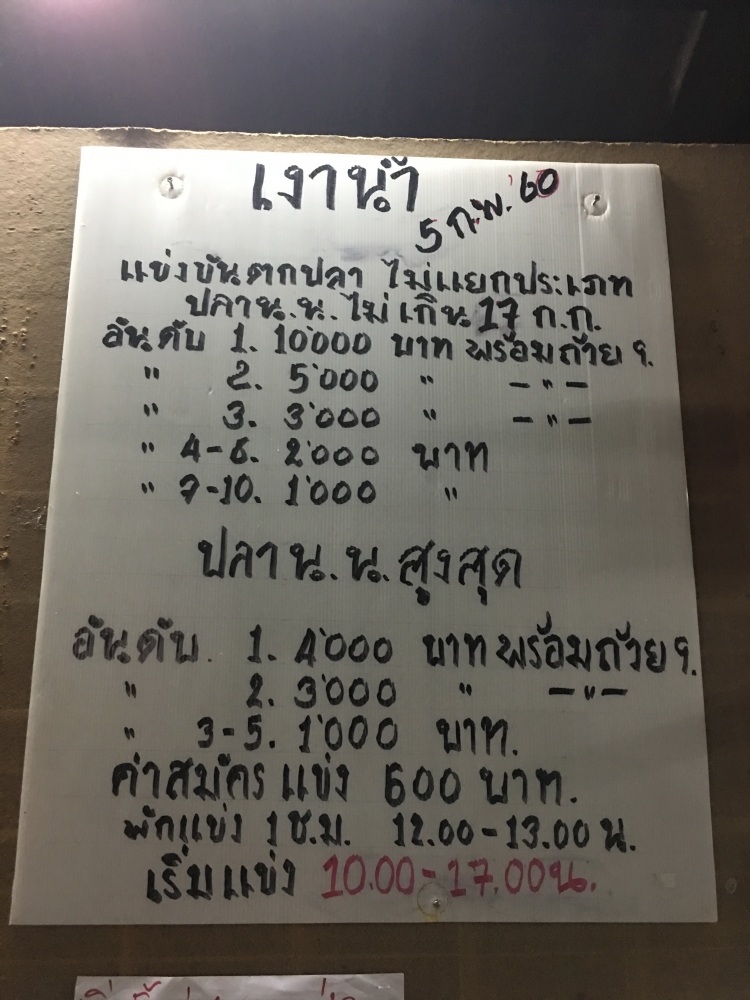 เงาน้ำ
5 ก.พ. '60
แข่งขันตกปลา ไม่แยกประเภท
ปลา น.น. ไม่เกิน 17 ก.ก.
อันดับ 1. 10'000 บาท พร้อมถ้วย ๆ.
" 2. 5'000 " – " –
" 3. 3'000 " – " –
" 4-6. 2'000 บาท
" 7-10. 1'000 "
ปลา น.น. สูงสุด
อันดับ. 1. 4'000 บาท พร้อมถ้วย ๆ.
" 2. 3'000 " – " –
" 3-5. 1'000 บาท.
ค่าสมัครแข่ง 600 บาท.
พักแข่ง 1 ช.ม. 12.00-13.00 น.
เริ่มแข่ง 10.00-17.00 น.